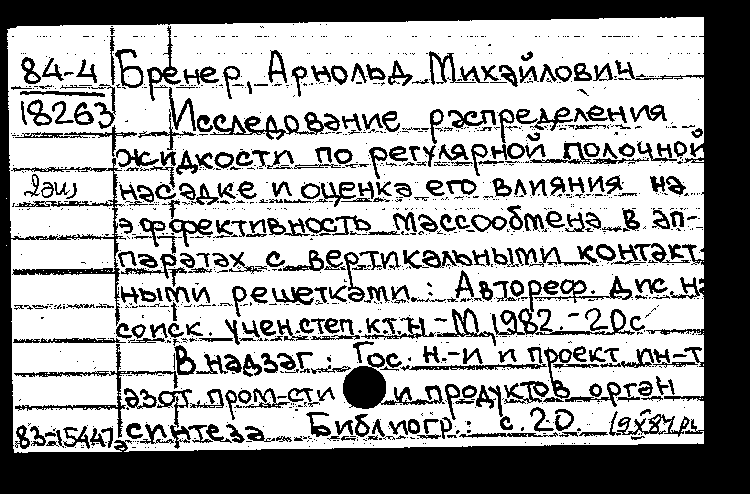 84-4 Бренер, Арнольд Михайлович
18263 Исследование распределения
жидкости по регулярной полочной
2 экз насадке и оценка его влияния на
эффективность массообмена в ап-
паратах с вертикальными контакт-
ными решетками.: Автореф. дис. на
соиск. учен. степ. к.т.н. - М, 1982. - 20с
В надзаг.: Гос. н.-и и проект. ин-т
азот. пром-сти и продуктов орган
83-15447 синтеза Библиогр.: с. 20.